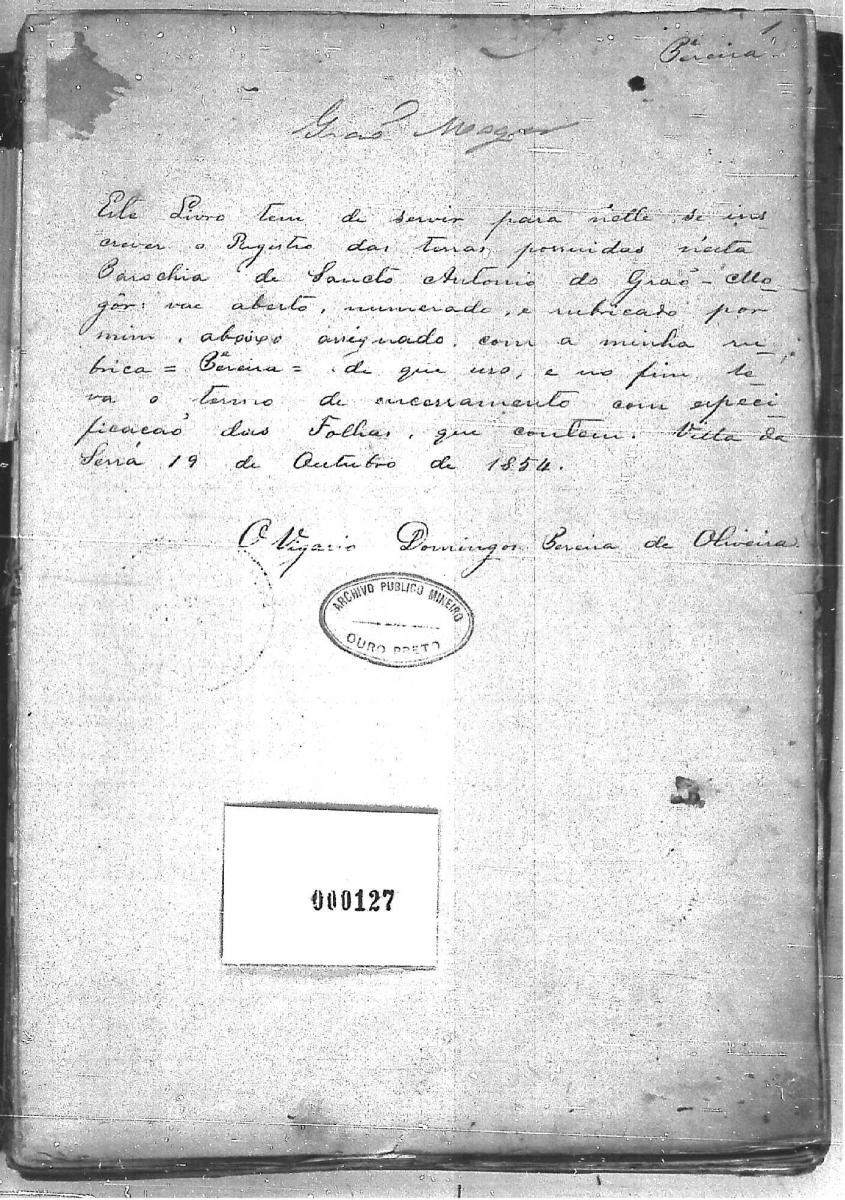 1
Pereira
Graõ Mogor
Este Livro tem de servir para nelle se ins
crever o Registro das terras possuidas nésta
Parochia de Sancto Antonio do Graõ-Mo-
gôr: vae aberto, numerado, e rubricado por
mim, abaixo assignado, com a minha ru-
brica = Pereira = de que uso, e no fim le-
va o termo de encerramento com especi-
ficacaõ das Folhas, que contem. Villa da
Serra 19 de Outubro de 1854.
O Vigario Domingos Pereira de Oliveira
ARCHIVO PUBLICO MINEIRO
OURO PRETO
000127